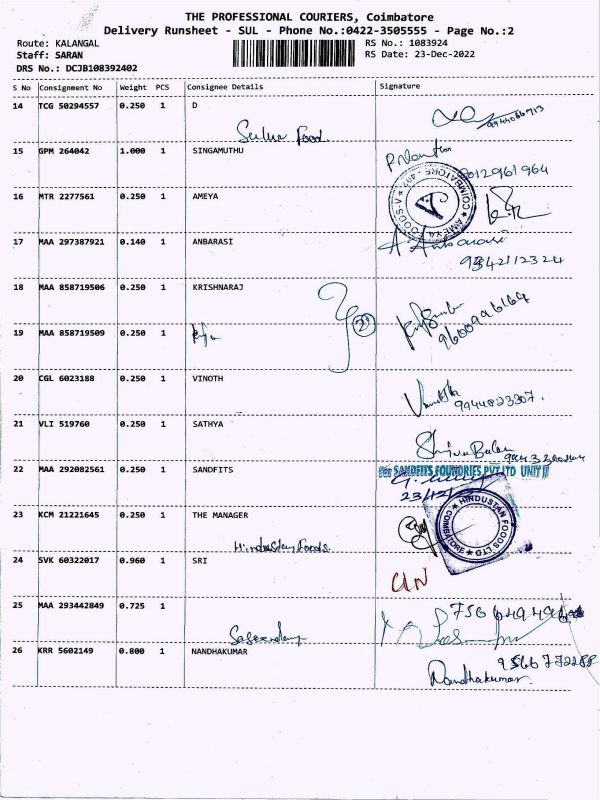 THE PROFESSIONAL COURIERS, Coimbatore
Delivery Runsheet - SUL - Phone No.:0422-3505555 - Page No.:2
Route: KALANGAL RS No.: 1083924
Staff: SARAN RS Date: 23-Dec-2022
DRS No.: DCJB108392402
S No Consignment No Weight PCS Consignee Details Signature
14 TCG 50294557 0.250 1 D
Food
15 GPM 264042 1.000 1 SINGAMUTHU
16 MTR 2277561 0.250 1 AMEYA
COIMBATORE AMEYA FOODS
17 MAA 297387921 0.140 1 ANBARASI
9342112324
18 MAA 858719506 0.250 1 KRISHNARAJ
2
19 MAA 858719509 0.250 1
9600996164
20 CGL 6023188 0.250 1 VINOTH
9944823307.
21 VLI 519760 0.250 1 SATHYA
22 MAA 292082561 0.250 1 SANDFITS
For SANDFITS FOUNDRIES PVT LTD UNIT II
23/12/
23 KCM 21221645 0.250 1 THE MANAGER
Hindustan Foods.
HINDUSTAN FOODS LTD COIMBATORE
24 SVK 60322017 0.960 1 SRI
25 MAA 293442849 0.725 1
26 KRR 5602149 0.800 1 NANDHAKUMAR
9566772288
Nandhakumar